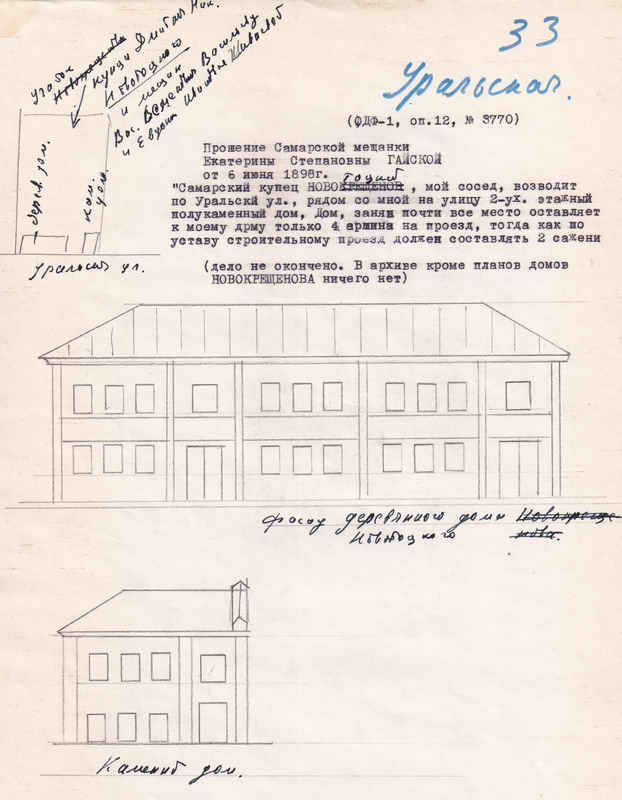 33
Уральская.
(ФДФ-1, оп.12, № 3770)
купца Дмитая Ник.
Новокрещенова
и мещан
Вас.
Василису
и
дерев. дом.
кам. дом
Уральская ул.
Прошение Самарской мещанки
Екатерины Степановны ГАЙСКОЙ
от 6 июня 1898г.
"Самарский купец НОВОКРЕЩЕНОВ, мой сосед, возводит
по Уральскй ул., рядом со мной на улицу 2-ух. этажный
полукаменный дом, Дом, заняв почти все место оставляет
к моему дрму только 4 аршина на проезд, тогда как по
уставу строительному проезд должен составлять 2 сажени
(дело не окончено. В архиве кроме планов домов
НОВОКРЕЩЕНОВА ничего нет)
фасад деревянного дома Новокреще
нова.
Камений дом.